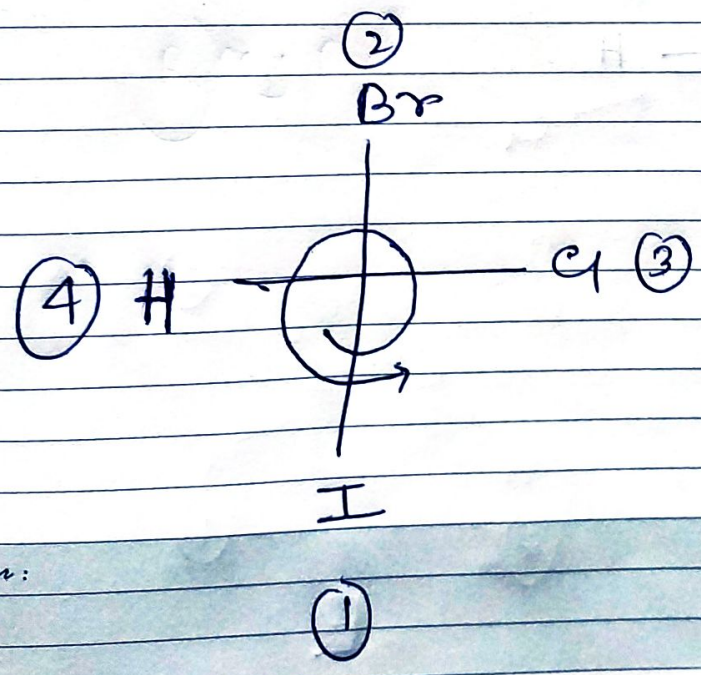 ②
Br
④ H Cl ③
I
:
①